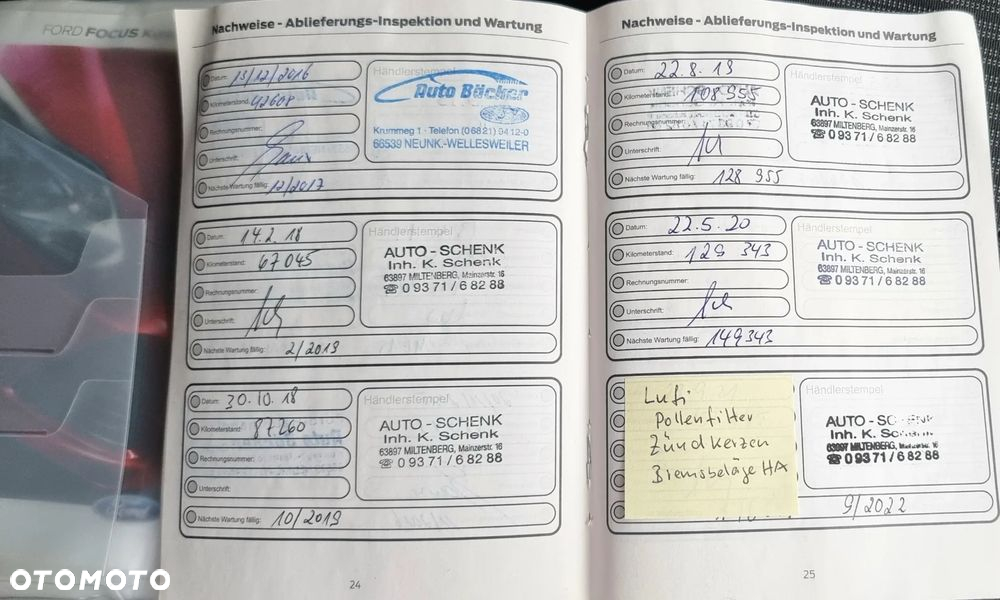 FORD FOCUS
Nachweise - Ablieferungs-Inspektion und Wartung
Datum: 13/12/2016
Kilometerstand: 42608
Rechnungsnummer:
Unterschrift:
Nächste Wartung fällig: 12/2017
Händlerstempel
Auto Bäcker
Krummeg 1 · Telefon (06821) 9412-0
66539 NEUNK.-WELLESWEILER
Datum: 14.2.18
Kilometerstand: 67045
Rechnungsnummer:
Unterschrift:
Nächste Wartung fällig: 2/2019
Händlerstempel
AUTO - SCHENK
Inh. K. Schenk
63897 MILTENBERG, Mainzerstr. 16
☎ 0 93 71 / 6 82 88
Datum: 30.10.18
Kilometerstand: 87260
Rechnungsnummer:
Unterschrift:
Nächste Wartung fällig: 10/2019
Händlerstempel
AUTO - SCHENK
Inh. K. Schenk
63897 MILTENBERG, Mainzerstr. 16
☎ 0 93 71 / 6 82 88
24
Nachweise - Ablieferungs-Inspektion und Wartung
Datum: 22.8.19
Kilometerstand: 108 955
Rechnungsnummer:
Unterschrift:
Nächste Wartung fällig: 128 955
Händlerstempel
AUTO - SCHENK
Inh. K. Schenk
63897 MILTENBERG, Mainzerstr. 16
☎ 0 93 71 / 6 82 88
Datum: 22.5.20
Kilometerstand: 129 343
Rechnungsnummer:
Unterschrift:
Nächste Wartung fällig: 149343
Händlerstempel
AUTO - SCHENK
Inh. K. Schenk
63897 MILTENBERG, Mainzerstr. 16
☎ 0 93 71 / 6 82 88
Lufi
Pollenfilter
Zündkerzen
Bremsbeläge HA
Händlerstempel
AUTO - SC
Inh. K.
63897 MILTENBERG, Mainzerstr. 16
☎ 0 93 71 / 6 82 88
9/2022
25
OTOMOTO